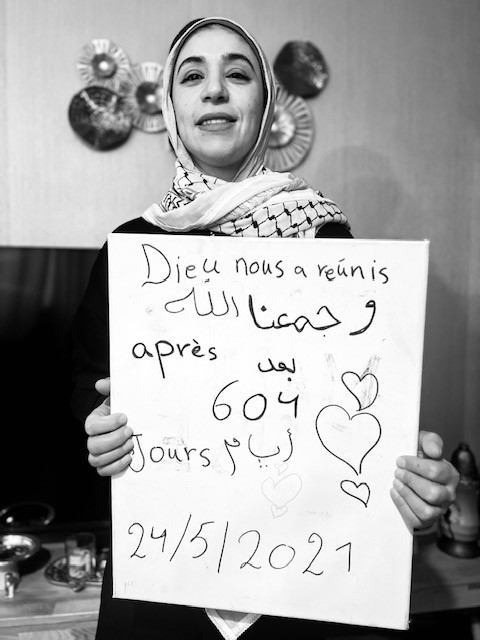 Dieu nous a reúnis
و جمعنا الله
après بعد
604
Jours أيام
24/5/2021